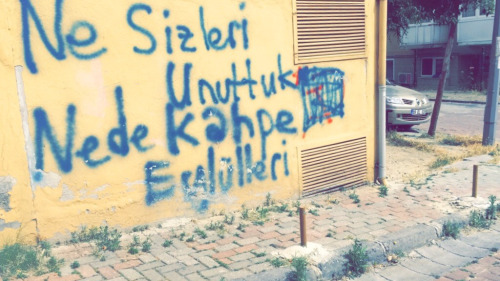 Ne Sizleri
Unuttuk
Nede kahpe
Eylülleri